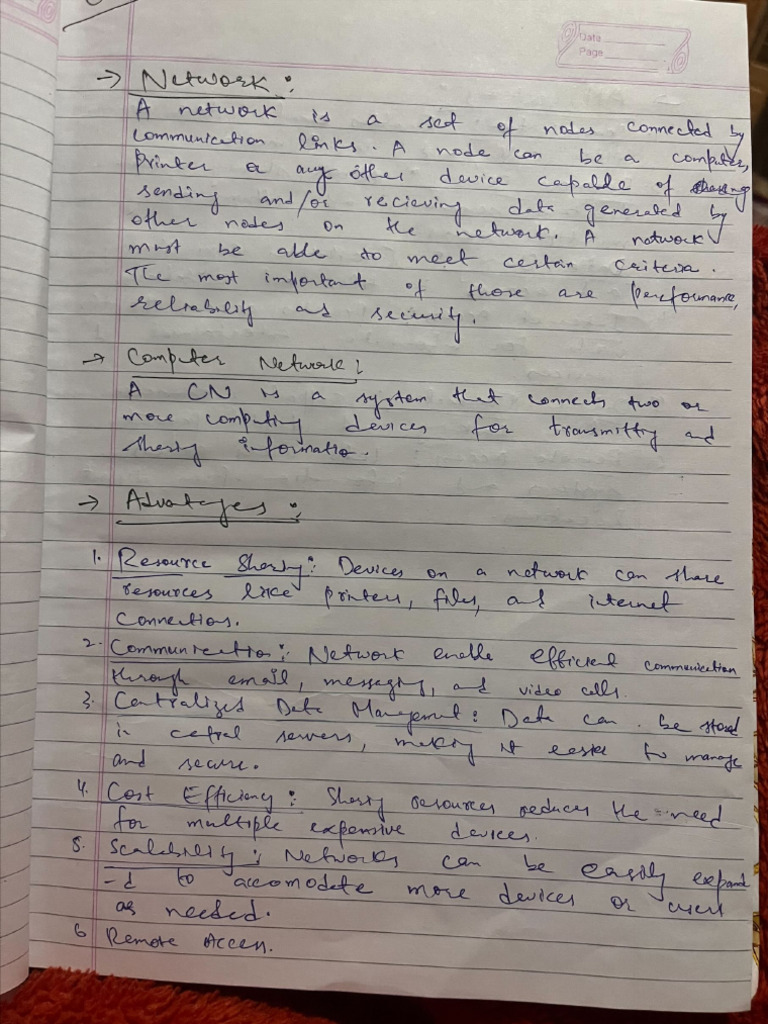 Date
Page
→ Network :
A network is a set of nodes connected by
communication links. A node can be a computer,
printer or any other device capable of
sending and/or recieving data generated by
other nodes on the network. A network
must be able to meet certain criteria.
The most important of those are performance,
reliability and security.
→ Computer Network :
A CN is a system that connects two or
more computing devices for transmitting and
sharing informatio.
→ Advatages :
1. Resource Sharing : Devices on a network can share
resources like printers, files, and internet
connections.
2. Communication : Network enable efficient communication
through email, messaging, and video calls.
3. Centralized Data Management : Data can be stored
in cetral servers, making it easier to manage
and secure.
4. Cost Efficiency : Sharing resources reduces the need
for multiple expensive devices.
5. Scalability : Networks can be easily expand
-d to accomodate more devices or users
as needed.
6 Remote Access.